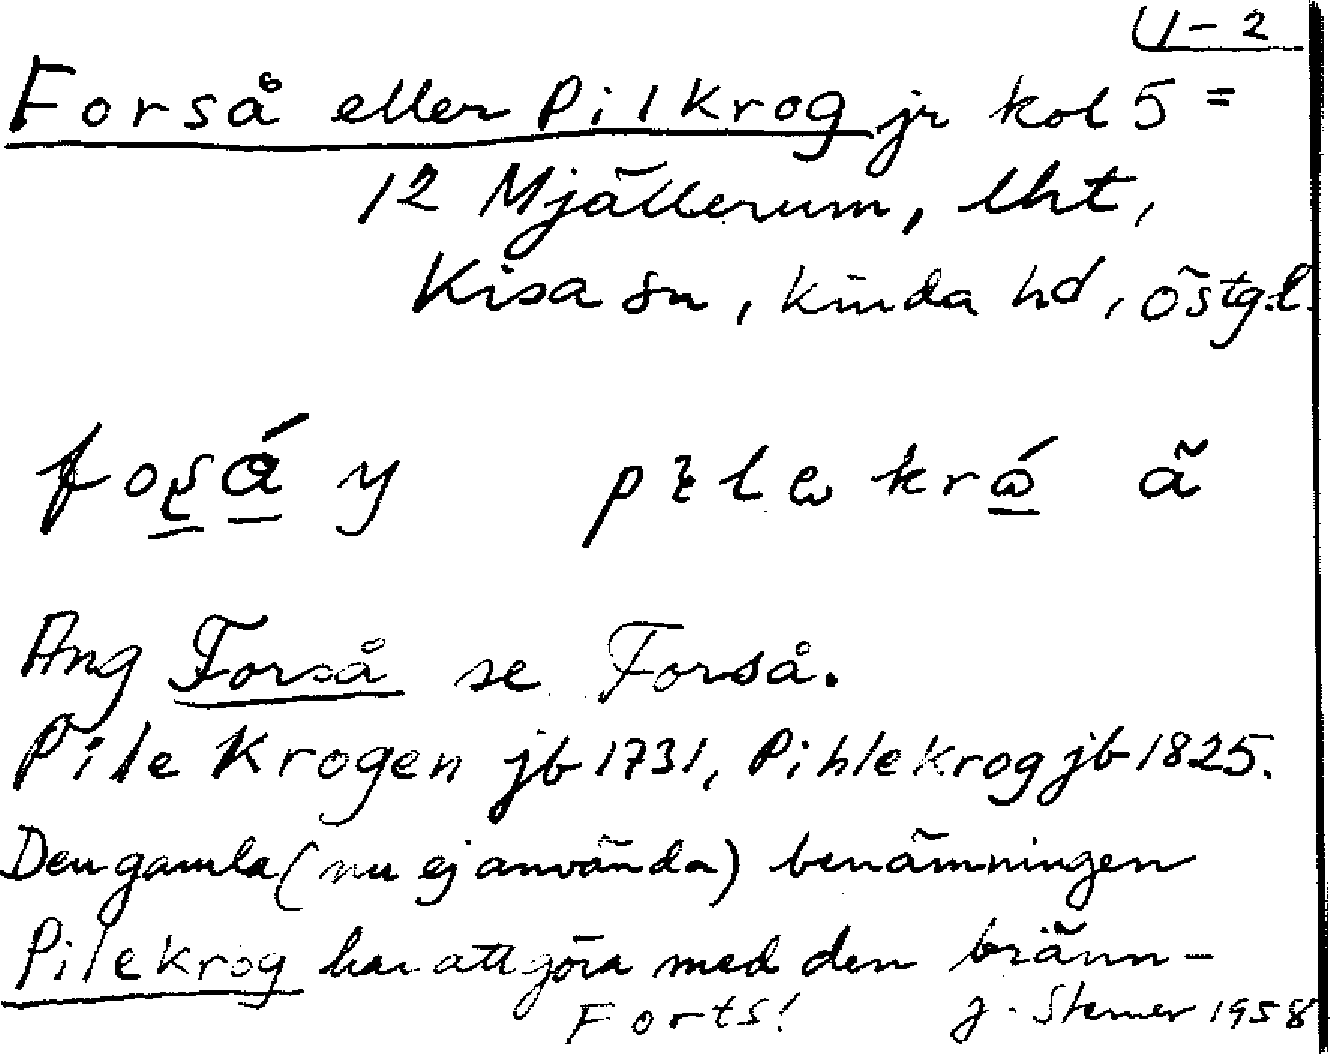 U-2
Forså eller Pilkrog jr kol 5 =
12 Mjällerum, lht,
Kisa sn, Kinda hd, Östg.l.
Ang Forså se Forså.
Pile Krogen jb 1731, Pihlekrog jb 1825.
Den gamla (nu ej använda) benämningen
Pilekrog har att göra med den bränn-
Forts! J. Sterner 1958